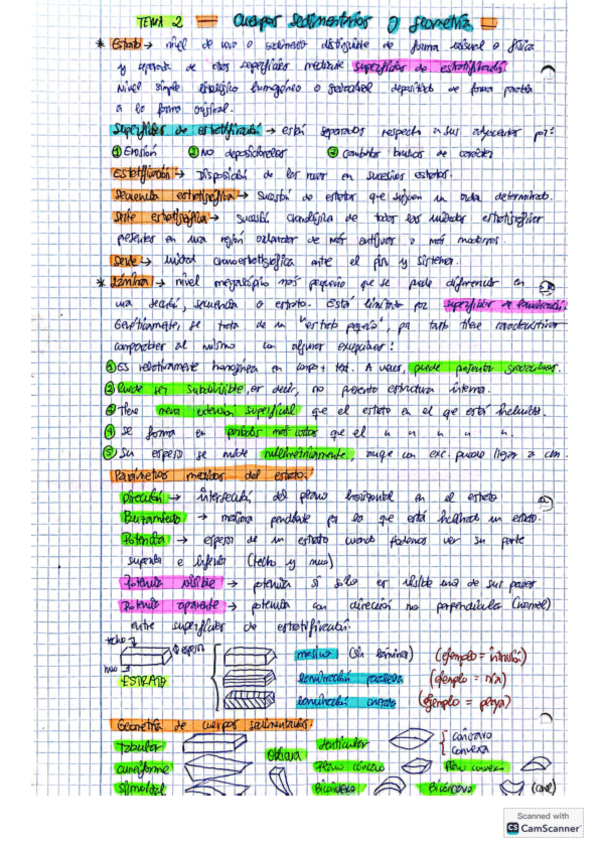 TEMA 2 — Cuerpos sedimentarios y geometría
* Estrato → nivel de roca o sedimento distinguible de forma visual o física
y separado de otras superficies mediante superficies de estratificación.
Nivel simple litológico homogéneo o gradacional depositado de forma paralela
a la forma original.
Superficies de estratificación → están separados respecto a sus adyacentes por:
① Erosión ② No deposicionales ③ Cambios bruscos de carácter
Estratificación → Disposición de las rocas en sucesivos estratos.
Secuencia estratigráfica → sucesión de estratos que siguen un orden determinado.
Serie estratigráfica → sucesión cronológica de todas las unidades estratigráficas
presentes en una región ordenadas de más antiguo a más moderno.
Serie → unidad cronoestratigráfica entre el piso y sistema.
* Lámina → nivel megascópico más pequeño que se puede diferenciar en
una sección, secuencia o estrato. Está limitado por superficies de laminación.
Genéticamente, se trata de un "estrato pequeño", por tanto tiene características
comparables al mismo con algunas excepciones:
① Es relativamente homogénea en comp + text. A veces, puede presentar
② Puede ser subdivisible, es decir, no presenta estructura interna.
③ Tiene menor extensión superficial que el estrato en el que está incluida.
④ Se forma en períodos más cortos que el u u u u u.
⑤ Su espesor se mide milimétricamente, aunque con exc. puede llegar a cm.
Parámetros medidos del estrato:
Dirección → intersección del plano horizontal en el estrato
Buzamiento → máxima pendiente por la que está inclinado un estrato.
Potencia → espesor de un estrato cuando podemos ver su parte
superior e inferior (techo y muro)
Potencia visible → potencia si solo es visible una de sus partes
Potencia aparente → potencia con dirección no perpendicular (normal)
entre superficies de estratificación.
techo
espesor
muro
ESTRATO
masivo (sin lámina) (ejemplo = )
laminación paralela (ejemplo = )
laminación cruzada (ejemplo = playa)
Geometría de cuerpos sedimentarios:
tabular
Oblicua
lenticular
cóncavo
convexa
cuneiforme
Plano cóncavo
Plano convexo
Sigmoidal
Biconvexo
Bicóncavo
(canal)
Scanned with
CS CamScanner